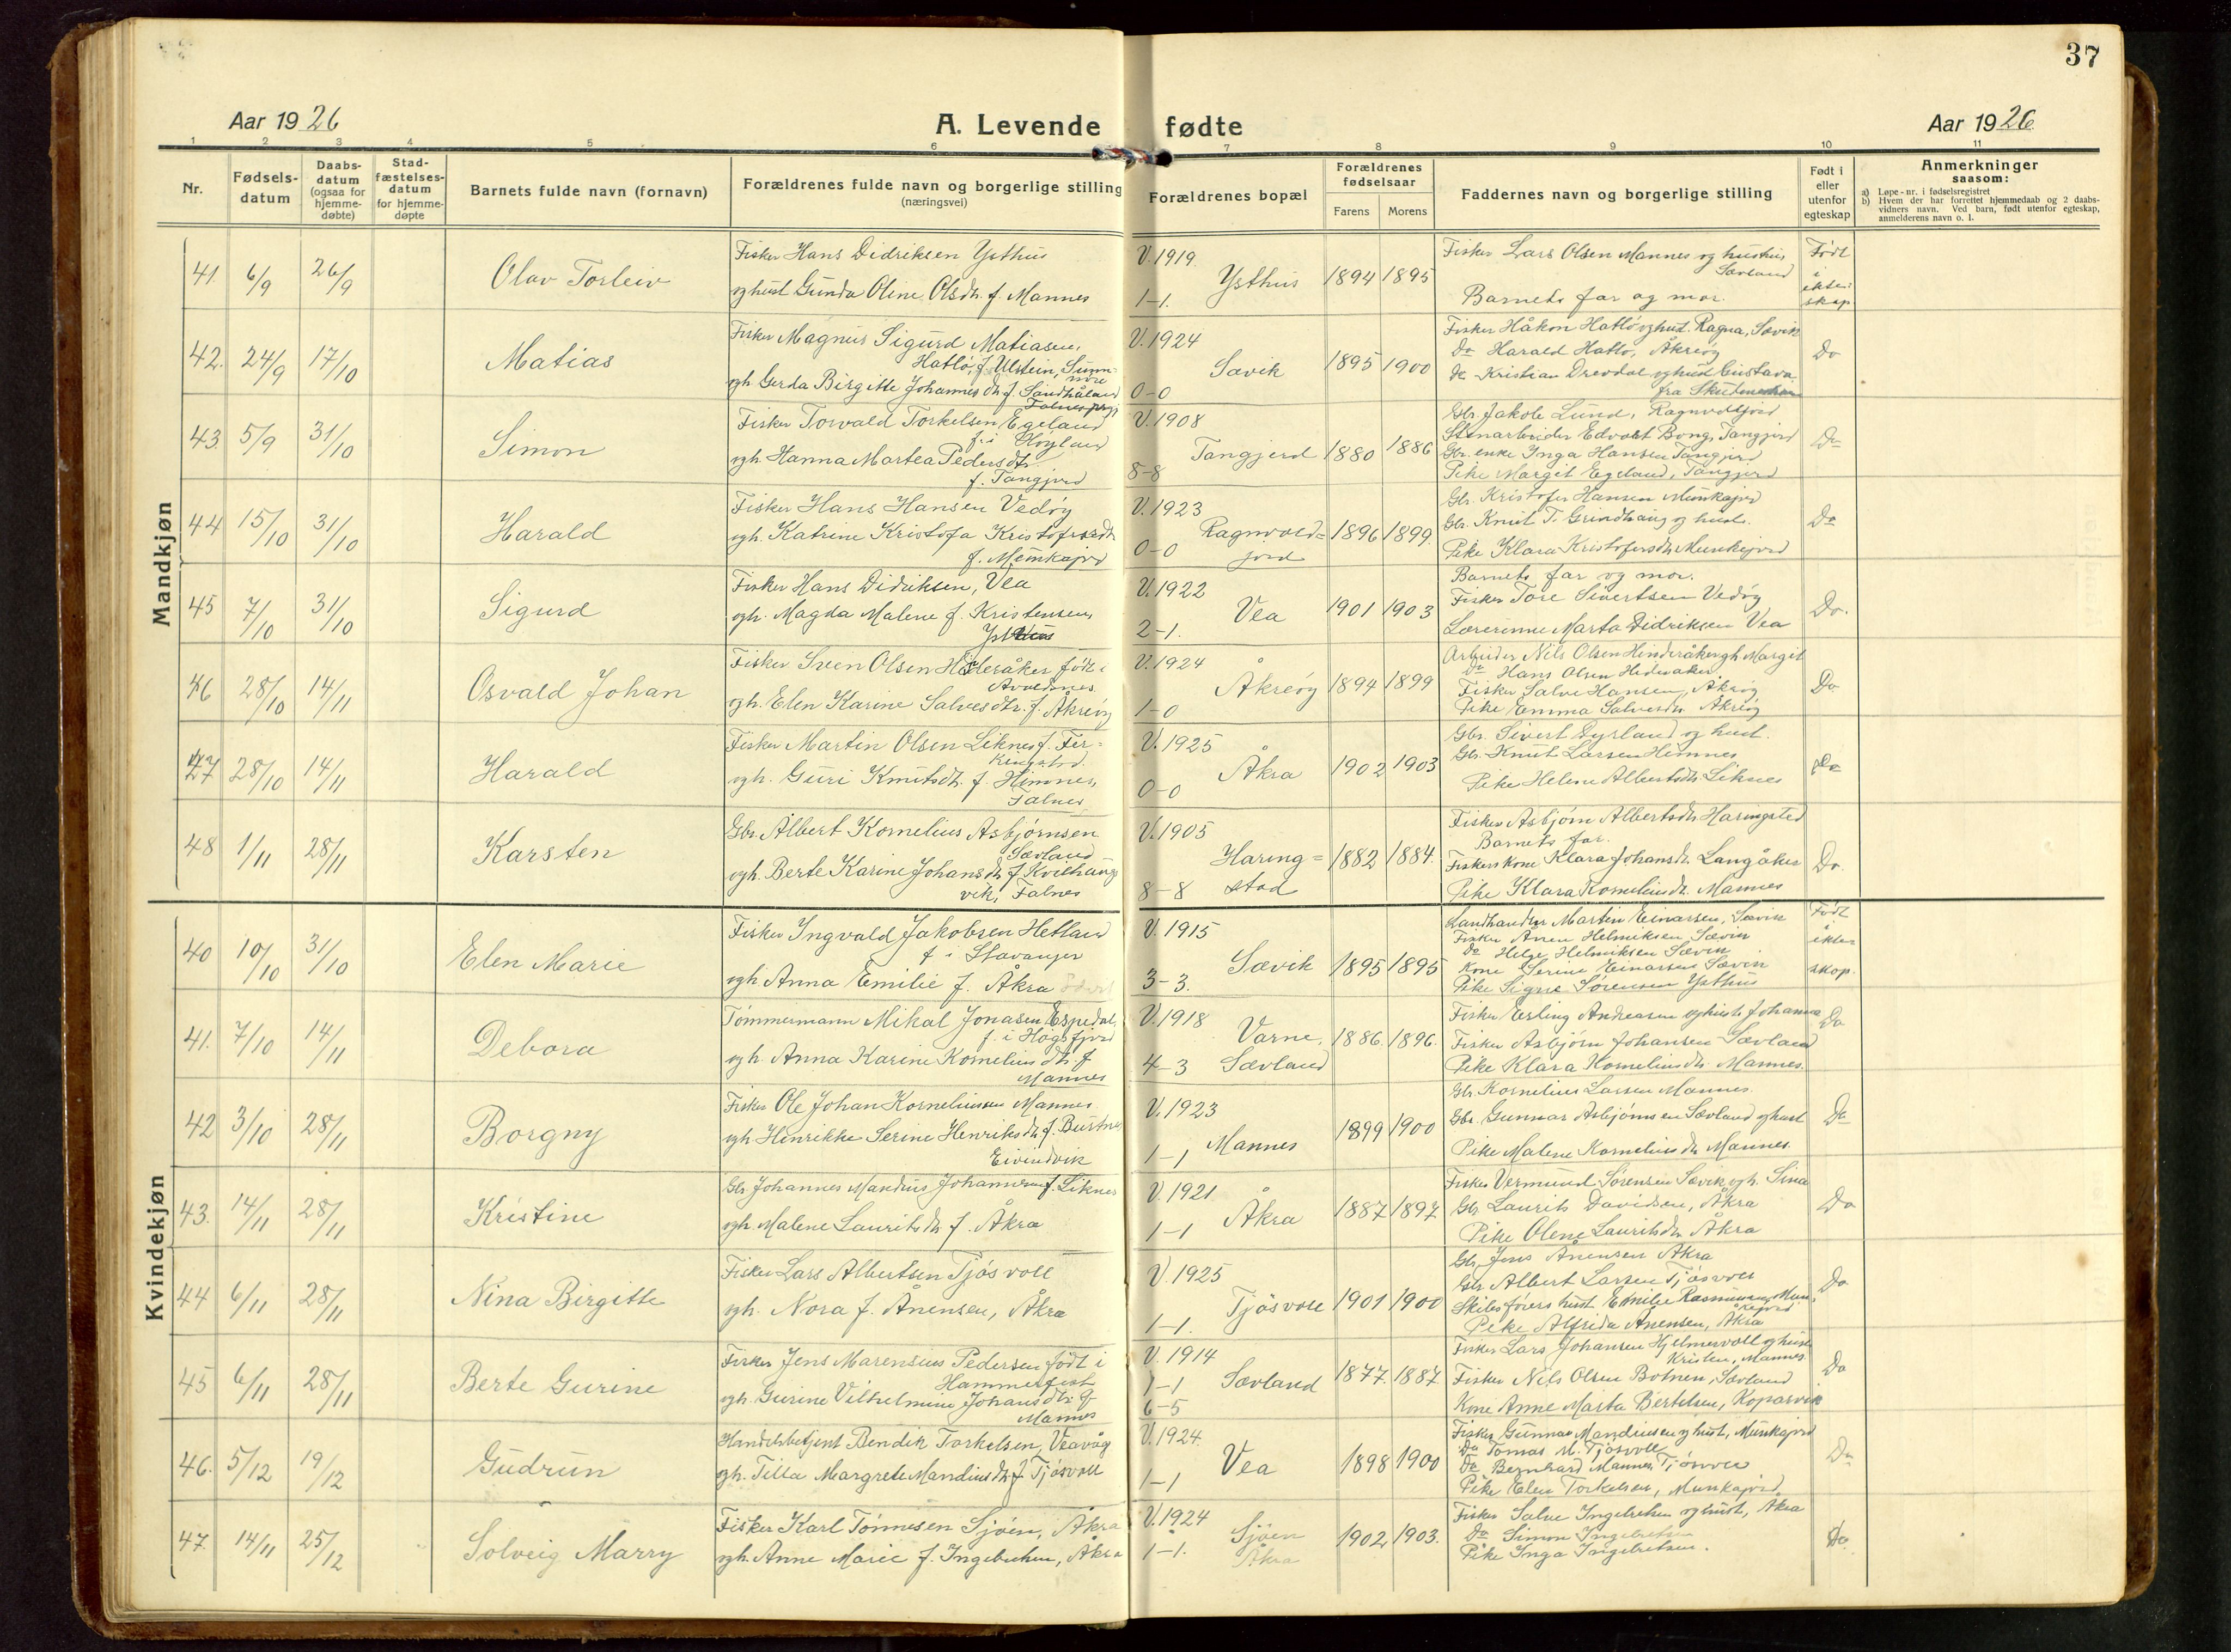 37
Aar 1926
A. Levende fødte
Aar 1926
1 2 3 4 5 6 7 8 9 10 11
Nr.
Fødsels-
datum
Daabs-
datum
(ogsaa for
hjemme-
døbte)
Stad-
fæstelses-
datum
for hjemme-
døpte
Barnets fulde navn (fornavn)
Forældrenes fulde navn og borgerlige stilling
(næringsvei)
Forældrenes bopæl
Forældrenes
fødselsaar
Farens Morens
Faddernes navn og borgerlige stilling
Født i
eller
utenfor
egteskap
Anmerkninger
saasom:
a) Løpe-nr. i fødselsregistret
b) Hvem der har forrettet hjemmedaab og 2 daabs-
vidners navn. Ved barn, født utenfor egteskap,
anmelderens navn o. l.
Mandkjøn
41. 6/9 26/9 Olav Torleiv
Fisker Hans Didriksen Ysthus
og hust Gunda Oline Olsdtr. f. Mannes
V. 1919
1-1. Ysthus 1894 1895
Fisker Lars Olsen Mannes og hustru
Sævland
Barnets far og mor.
Født
i
ekte-
skap
42. 24/9 17/10 Matias
Fisker Magnus Sigurd Matiasen,
Hatlø, f. Ulstein, Sunn-
møre
ogh Gerda Birgitte Johannesdtr f. Sandhåland
V. 1924
0-0 Sævik 1895 1900
Fisker Håkon Hatlø og hust. Ragna, Sævik
Do Harald Hatlø, Åkreøy
Do Kristian Drevdal og hust Gustava
fra
Do
43. 5/9 31/10 Simon
Fisker Torvald Torkelsen Egeland
ogh Hanna Martea Pedersdtr.
f. Tangjerd
V. 1908
8-8 Tangjerd 1880 1886
Gbr. Jakob Lund,
Stenarbeider Edvart Bong, Tangjerd
Gbr. enke Inga Hansen Tangjerd
Pike Margit Egeland, Tangjerd
Do
44 15/10 31/10 Harald
Fisker Hans Hansen Vedøy
ogh. Katrine Kristofa Kristofersdtr
f. Munkajord
V. 1923
0-0 Ragnvald=
jord 1896 1899.
Gbr. Kristofer Hansen Munkajord
Gbr. Knut T. Grindhaug og hust.
Pike Klara Kristofersdtr Munkejord
Do
45 7/10 31/10 Sigurd
Fisker Hans Didriksen, Vea
ogh. Magda Malene f. Kristensen,
Ysthus
V. 1922
2-1. Vea 1901 1903
Barnets far og mor.
Fisker Tore Sivertsen Vedøy
Lærerinne Marta Didriksen Vea
Do.
46 28/10 14/11 Osvald Johan
Fisker Sven Olsen født i
Avaldsnes
ogh. Elen Karine Salvesdtr. f. Åkreøy
V. 1924
1-0 Åkreøy 1894 1899
Arbeider Nils Olsen Hinderåker ogh Margit
Do Hans Olsen Hideraker
Fisker Salve Hansen, Åkreøy
Pike Emma Salvesdtr Åkreøy
Do
47 28/10 14/11 Harald
Fisker Martin Olsen Liknes f. Fer=
kingstad.
ogh. Guri Knutsdtr. f. Hemnes,
Falnes
V. 1925
0-0 Åkra 1902 1903
Gbr. Sivert Dyrland og hust.
Gbr. Knut Larsen Hemnes
Pike Helene Albertsdtr Liknes
Do
48 1/11 28/11 Karsten
Gbr. Albert Kornelius Asbjørnsen
Sævland
ogh. Berte Karine Johansdtr f. Kvilhaug-
vik, Falnes
V. 1905
8-8 Haring=
stad 1882 1884.
Fisker Asbjørn Albertsdtr Haringsted
Barnets far.
Fiskers kone Klara Johansdtr Langåker
Pike Klara Korneliusdtr. Mannes
Do.
Kvindekjøn
40 10/10 31/10 Elen Marie
Fisker Ingvald Jakobsen Hetland
f. i Stavanger
ogh Anna Emilie f. Åkra
V. 1915
3-3. Sævik 1895 1895
Landhandler Martin Einarsen, Sævik
Fisker Helmiksen Sævik
Do Helge Helmiksen Sævik
Kone Serine Einarsen Sævik
Pike Signe Sørensen Ysthus
Født
i ekte-
skap.
41. 7/10 14/11 Debora
Tømmermann Mikal Jonasen Espedal,
f. i Høgsfjord
ogh. Anna Karine Korneliusdtr. f
Mannes
V. 1918
4-3 Varne,
Sævland 1886. 1896.
Fisker Erling Andreasen og hust. Johanna
Fisker Asbjørn Johansen Sævland
Pike Klara Korneliusdtr Mannes.
Do
42 3/10 28/11 Borgny
Fisker Ole Johan Korneliussen Mannes.
ogh Henrikke Serine Henriksdtr. f. Bustnes
Eivindvik
V. 1923
1-1 Mannes 1899 1900
Gbr. Kornelius Larsen Mannes
Gbr. Gunnar Asbjørnsen Sævland og hust
Pike Malene Korneliusdtr Mannes.
Do
43. 14/11 28/11 Kristine
Gbr Johannes Mandius Johannesen f. Liknes
ogh. Malene Lauritsdtr f. Åkra
V. 1921
1-1 Åkra 1887 1897
Fisker Vermund Sørensen Sævik ogh. Sina
Gbr Laurits Davidsen, Åkra
Pike Olene Lauritsdtr Åkra
Do
44 6/11 28/11 Nina Birgitte
Fisker Lars Albertsen Tjøsvoll
ogh. Nora f. Ånensen, Åkra
V. 1925
1-1. Tjøsvoll 1901 1900
Gbr. Jens Ånensen Åkra
Gbr. Albert Larsen Tjøsvoll
Skibsførers hust Emilie Rasmussen, Mun-
kejord
Pike Alfrida Ånensen, Åkra
Do
45 6/11 28/11 Berte Gurine
Fisker Jens Marensius Pedersen født i
Hammerfest
ogh. Gurine Vilhelmine Johansdtr. f
Mannes
V. 1914
1-1
6-5 Sævland 1877. 1887
Fisker Lars Johansen Hjelmervoll og hust
Kristen, Mannes.
Fisker Nils Olsen Botnen, Sævland
Kone Anne Marta Bertelsen, Kopervik
Do
46. 5/12 19/12 Gudrun
Handelsbetjent Bendik Torkelsen, Veavåg
ogh. Tilla Margrete Mandiusdtr f. Tjøsvoll
V. 1924
1-1 Vea 1898 1900
Fisker Gunnar Mandiusen og hust, Munkajord
Do Tomas M. Tjøsvoll
Do Bernhard Mannes Tjøsvoll
Pike Elen Torkelsen, Munkajord.
Do
47. 14/11 25/12 Solveig Marry
Fisker Karl Tønnesen Sjøen, Åkra
ogh. Anne Marie f. Ingebretsen, Åkra
V. 1924
1-1. Sjøen
Åkra 1902 1903.
Fisker Salve Ingebretsen og hust, Åkra
Do Simon Ingebretsen
Pike Inga Ingebretsen.
Do.